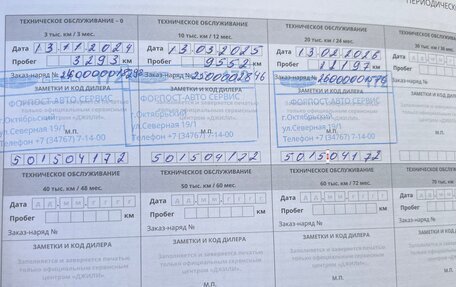 ПЕРИОДИЧЕСКО
ТЕХНИЧЕСКОЕ ОБСЛУЖИВАНИЕ – 0
3 тыс. км / 3 мес.
Дата 13.11.2024
Пробег 3293 км
Заказ-наряд №
ЗАМЕТКИ И КОД ДИЛЕРА
ФОРПОСТ-АВТО СЕРВИС
г.Октябрьский
ул.Северная 19/1
М.П.
Телефон +7 (34767) 7-14-00
501504172
ТЕХНИЧЕСКОЕ ОБСЛУЖИВАНИЕ
10 тыс. км / 12 мес.
Дата 13.03.2025
Пробег 9552 км
Заказ-наряд № 2500002846
ЗАМЕТКИ И КОД ДИЛЕРА
ФОРПОСТ-АВТО СЕРВИС
г.Октябрьский
ул.Северная 19/1
М.П.
Телефон +7 (34767) 7-14-00
501504122
ТЕХНИЧЕСКОЕ ОБСЛУЖИВАНИЕ
20 тыс. км / 24 мес.
Дата 13.02.2026
Пробег 12197 км
Заказ-наряд №
ЗАМЕТКИ И КОД ДИЛЕРА
ФОРПОСТ-АВТО СЕРВИС
г.Октябрьский
ул.Северная 19/1
М.П.
Телефон +7 (34767) 7-14-00
501504172
ТЕХНИЧЕСКОЕ
30 тыс. км / 36 мес.
Дата
Пробег
Заказ-наряд №
ЗАМЕТКИ И
ТЕХНИЧЕСКОЕ ОБСЛУЖИВАНИЕ
40 тыс. км / 48 мес.
Дата д д м м г г г г
Пробег км
Заказ-наряд №
ЗАМЕТКИ И КОД ДИЛЕРА
Заполняется и заверяется печатью
только официальным сервисным
центром «ДЖИЛИ».
М.П.
ТЕХНИЧЕСКОЕ ОБСЛУЖИВАНИЕ
50 тыс. км / 60 мес.
Дата д д м м г г г г
Пробег км
Заказ-наряд №
ЗАМЕТКИ И КОД ДИЛЕРА
Заполняется и заверяется печатью
только официальным сервисным
центром «ДЖИЛИ».
М.П.
ТЕХНИЧЕСКОЕ ОБСЛУЖИВАНИЕ
60 тыс. км / 72 мес.
Дата д д м м г г г г
Пробег км
Заказ-наряд №
ЗАМЕТКИ И КОД ДИЛЕРА
Заполняется и заверяется печатью
только официальным сервисным
центром «ДЖИЛИ».
М.П.
ТЕХНИЧЕСКОЕ
70 тыс. км
Дата
Пробег
Заказ-наряд №
ЗАМЕТКИ